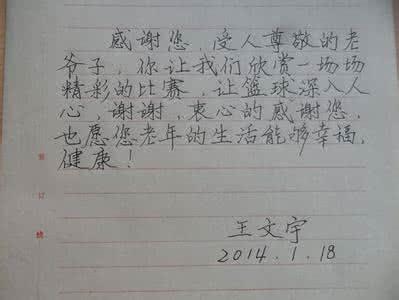 感谢您,受人尊敬的老
爷子,你让我们欣赏一场场
精彩的比赛,让篮球深入人
心,谢谢,衷心的感谢您,
也愿您老年的生活能够幸福,
健康!
装
订
线
王文宇
2014.1.18